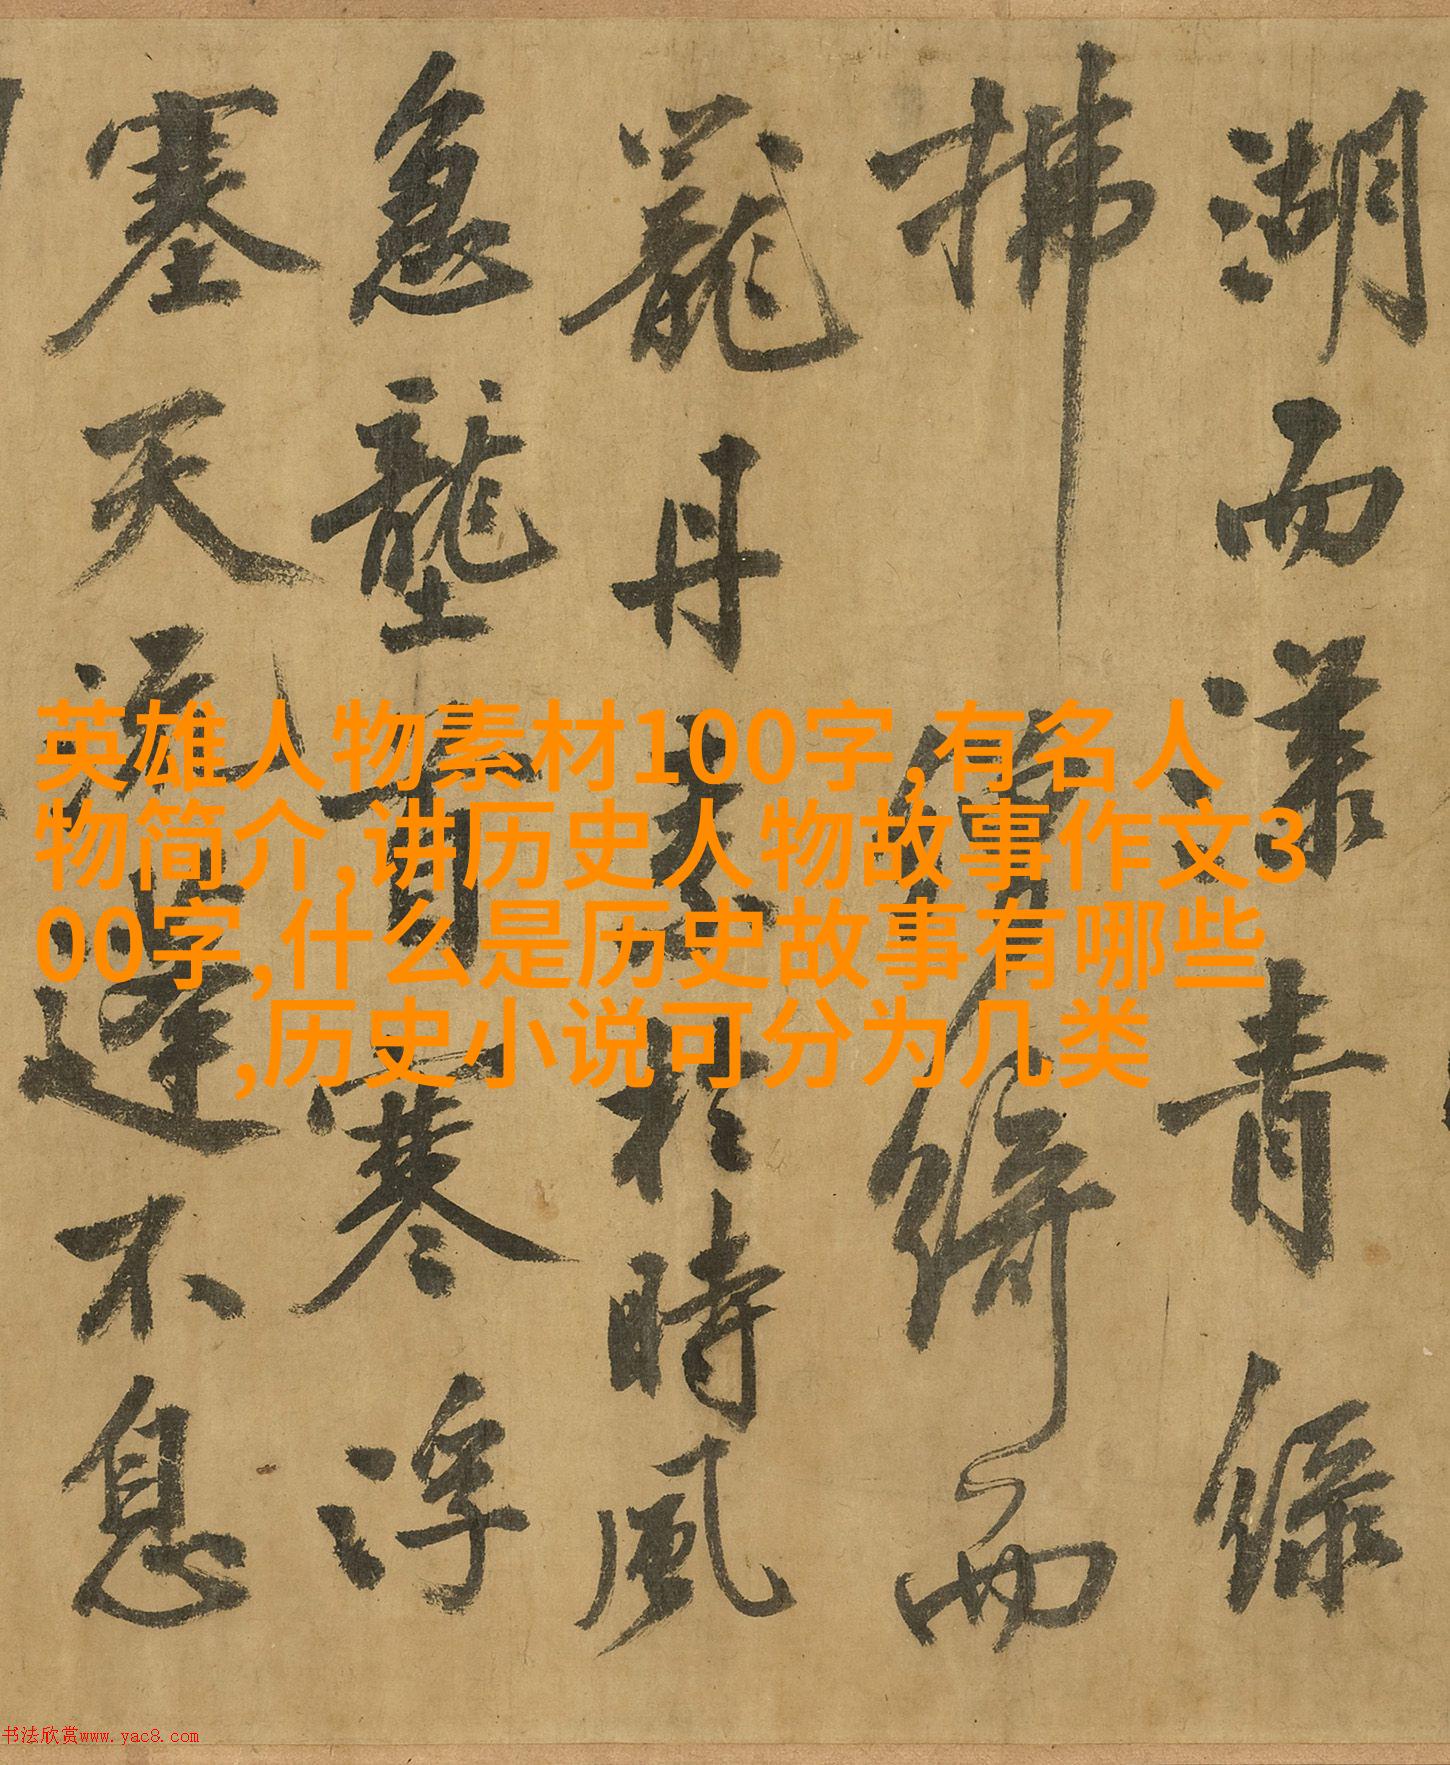 湖而漾青緑
拂綺而
蘢丹於時風
急壟首寒浮
塞天流逢不息
英雄人物素材100字,有名人
物简介,讲历史人物故事作文3
00字,什么是历史故事有哪些
,历史小说可分为几类
书法欣赏www.yac8.com